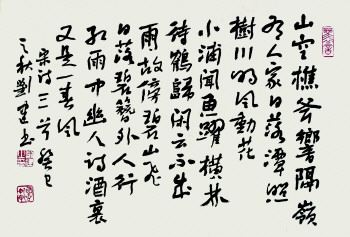 山空樵斧響隔嶺
有人家日落潭照
樹川明風動花
小浦聞魚躍橫林
待鶴歸閑云不成
雨故傍碧山飛
日落碧簪外人行
紅雨中幽人詩酒裏
又是一春風
宋詩三首癸巳
之秋劉書